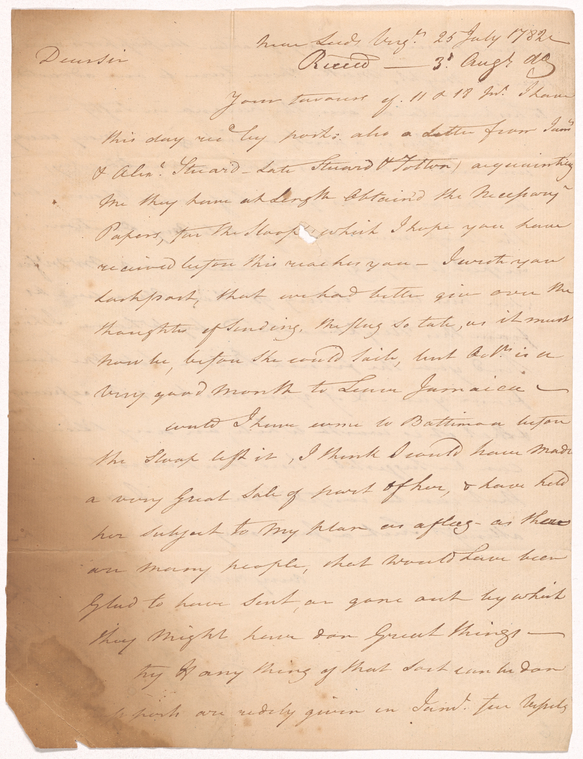 near Leeds Virgᵃ 25 July 1782
Dear Sir
Receed — 3ᵈ Augᵗ do
Your favours of 11 & 18 Inˢ I have
this day recᵈ by post: also a Letter from Jamˢ
& Alexʳ Steuard - Late Steuard & Totten, acquainting
me they have at Length Obtaind the Necessary
Papers, for the Sloop which I hope you have
received before this reaches you — I wrote you
Last post, that we had better give over the
thoughts of Sending the flag so late, as it must
now be, before she could sail, but Octʳ is a
Very good month to Leave Jamaica —
could I have come to Baltimore before
the Sloop left it, I think I could have made
a very Great Sale of part of her, & have held
her subject to my plan as a flag - as there
are many people, that would have been
Glad to have Sent, or gone out by which
they might have don Great things —
try if any thing of that Sort can be don
are redely given in Jamᵃ. for Vessels